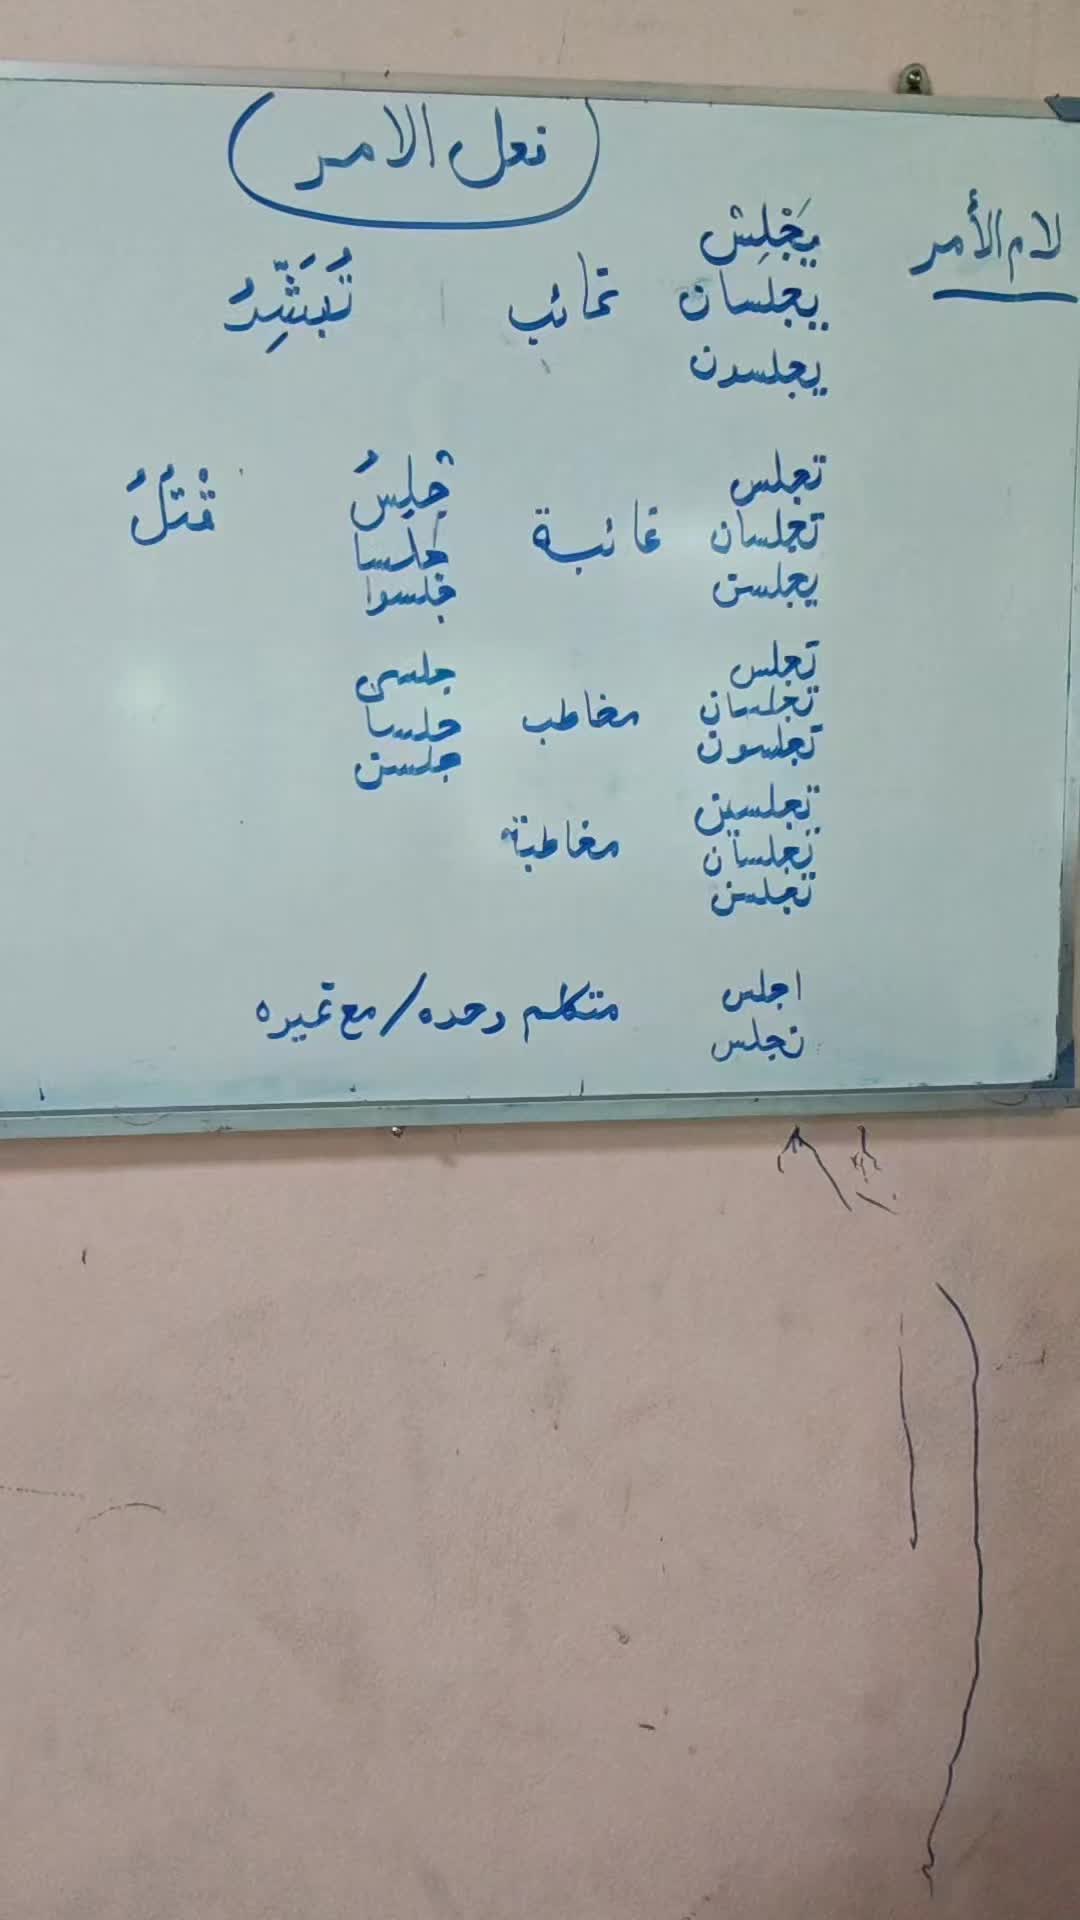 فعل الامر
لام الأمر
يَجْلِسُ
يجلسان غائب تُبَشِّرُ
يجلسون
تجلس جْلِسُ قْتُلُ
تجلسان غائبة جلسا
يجلسن جلسوا
تجلس جلسى
تجلسان مخاطب جلسا
تجلسون جلسن
تجلسين
تجلسان مخاطبة
تجلسن
اجلس متكلم وحده/مع غيره
نجلس